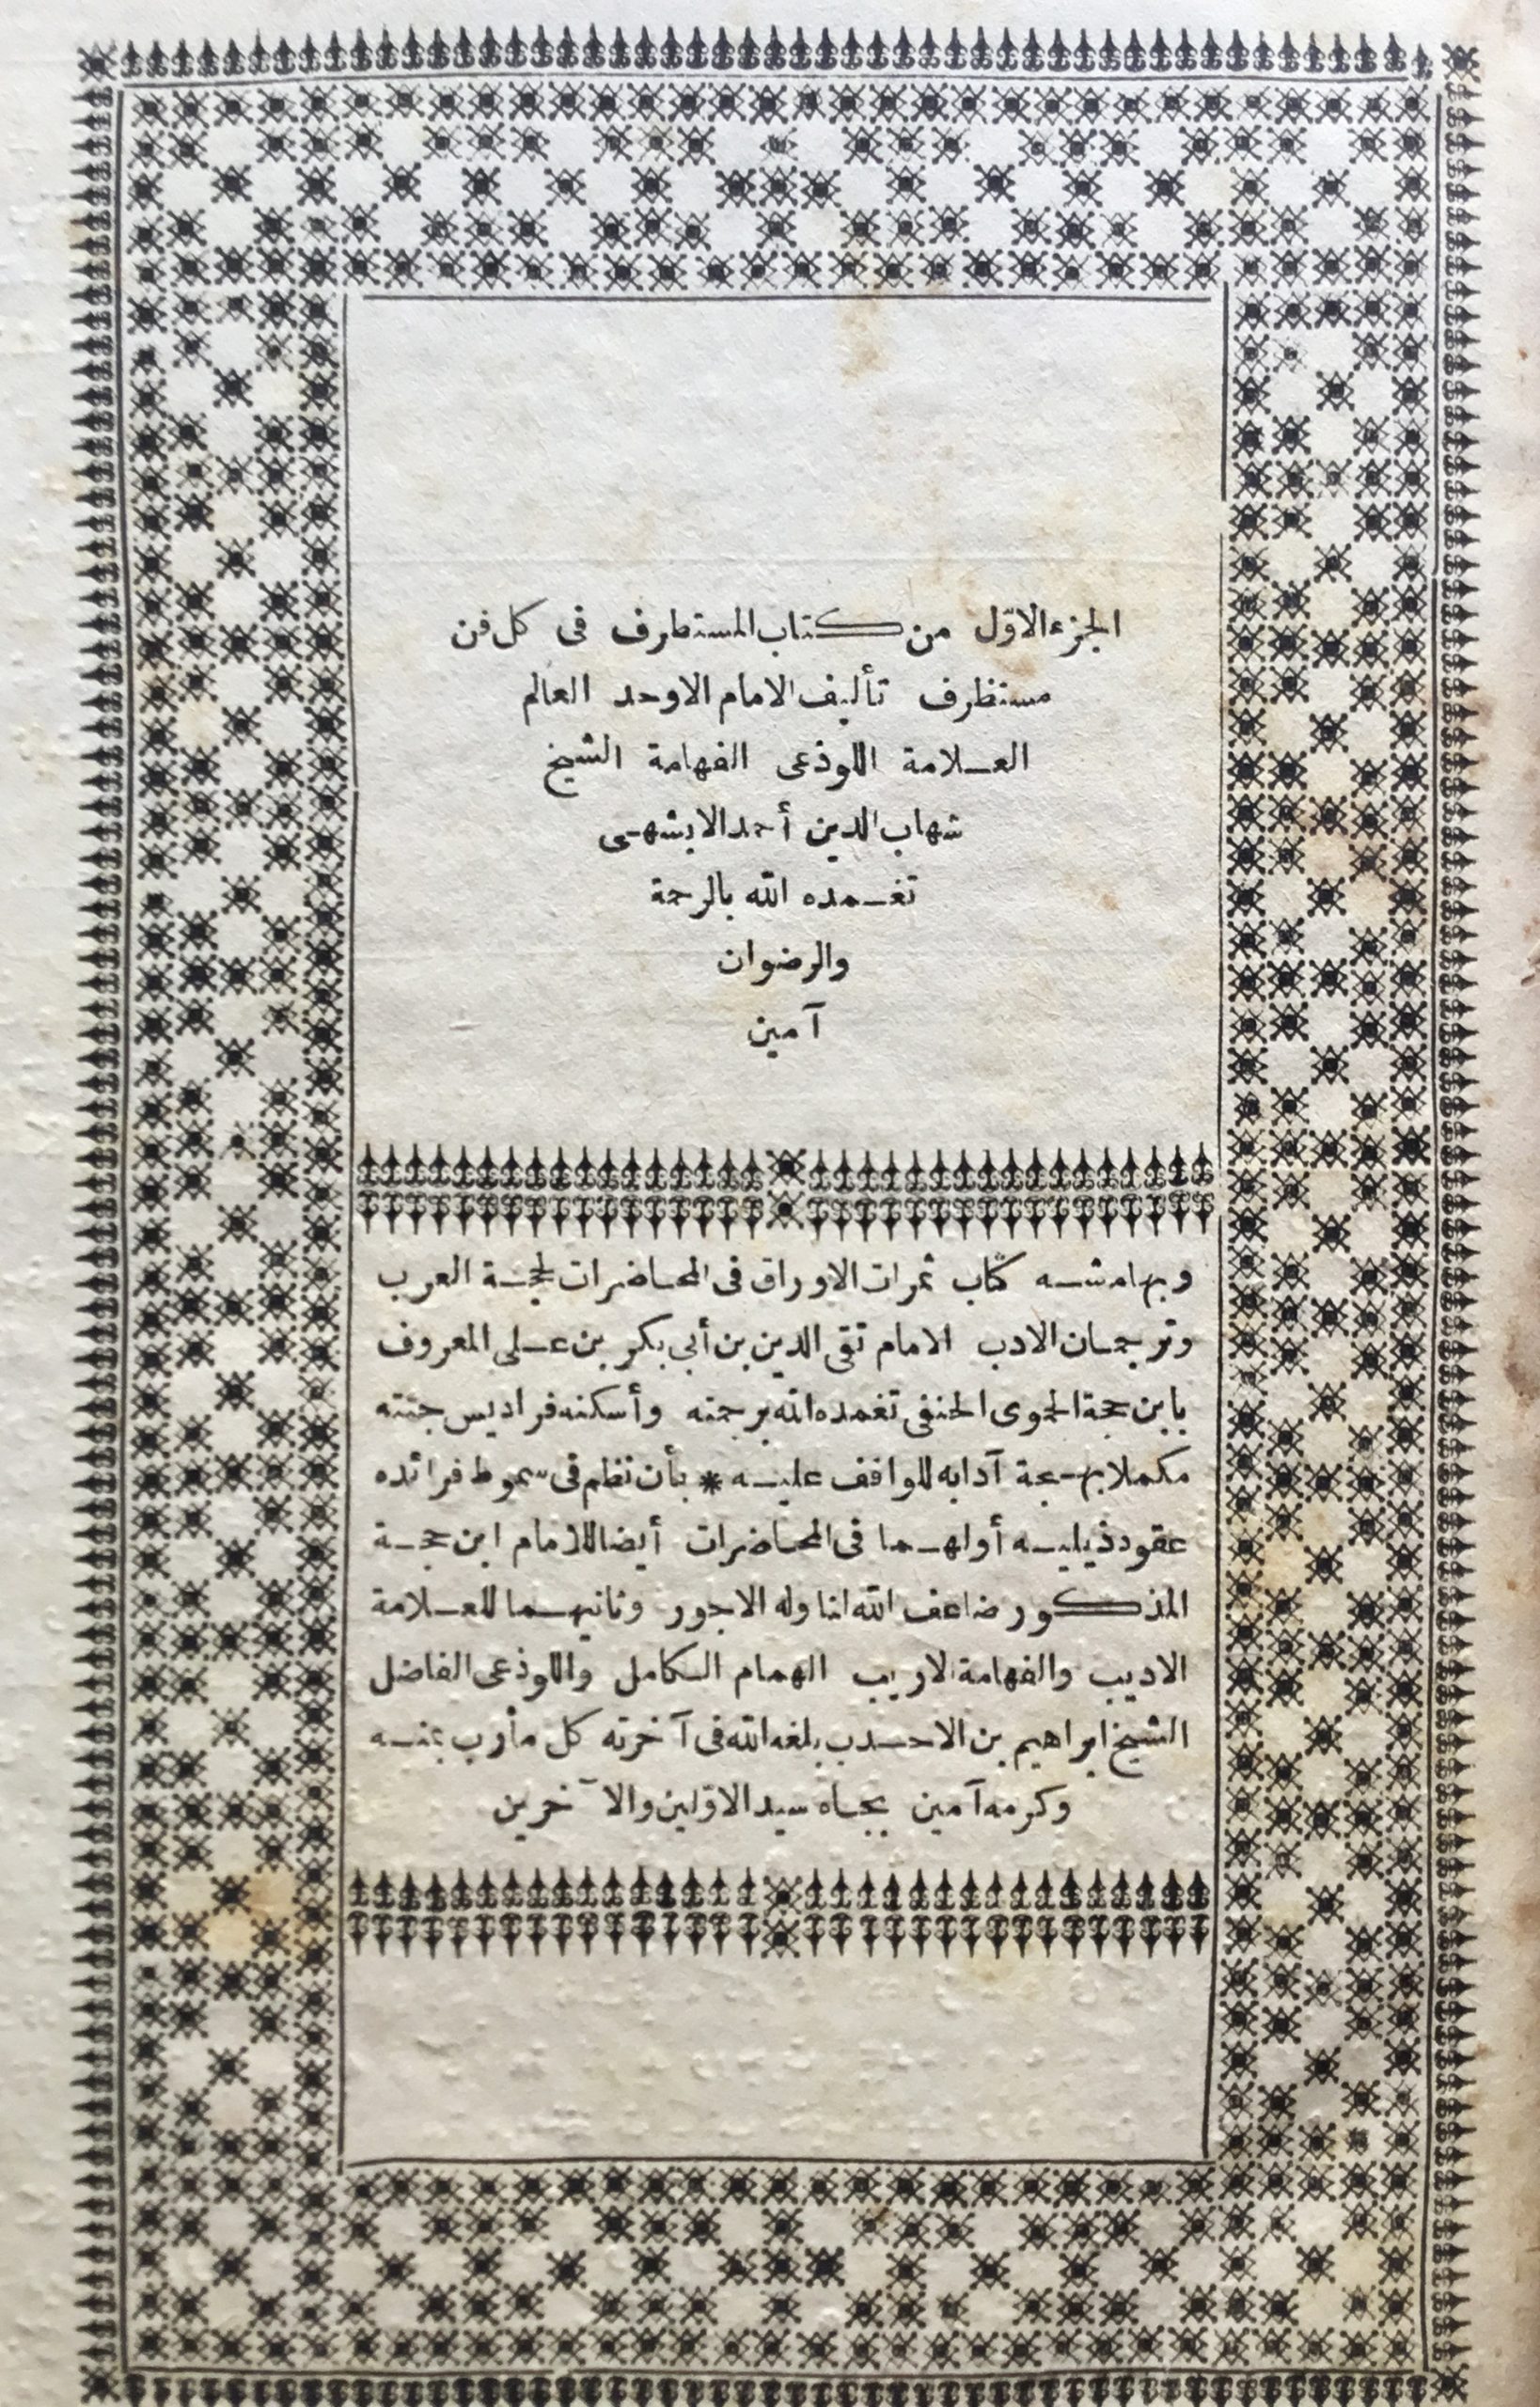 الجزء الاوّل من كتاب المستطرف فى كل فن
مستظرف تأليف الامام الاوحد العالم
العلامة اللوذعى الفهامة الشيخ
شهاب الدين أحمد الابشهى
تغمده الله بالرحمة
والرضوان
آمين
وبهامشه كتاب ثمرات الاوراق فى المحاضرات لحجة العرب
وترجمان الادب الامام تقى الدين بن أبى بكر بن على المعروف
بابن حجة الحموى الحنفى تغمده الله برحمته وأسكنه فراديس جنته
مكملا بهجة آدابه للواقف عليه * بأن نظم فى سموط فرائده
عقود ذيليه أولهما فى المحاضرات أيضا للامام ابن حجة
المذكور ضاعف الله لنا وله الاجور وثانيهما للعلامة
الاديب والفهامة الاريب الهمام الكامل واللوذعى الفاضل
الشيخ ابراهيم بن الاحدب بلغه الله فى آخرته كل مأرب بمنه
وكرمه آمين بجاه سيد الاوّلين والآخرين